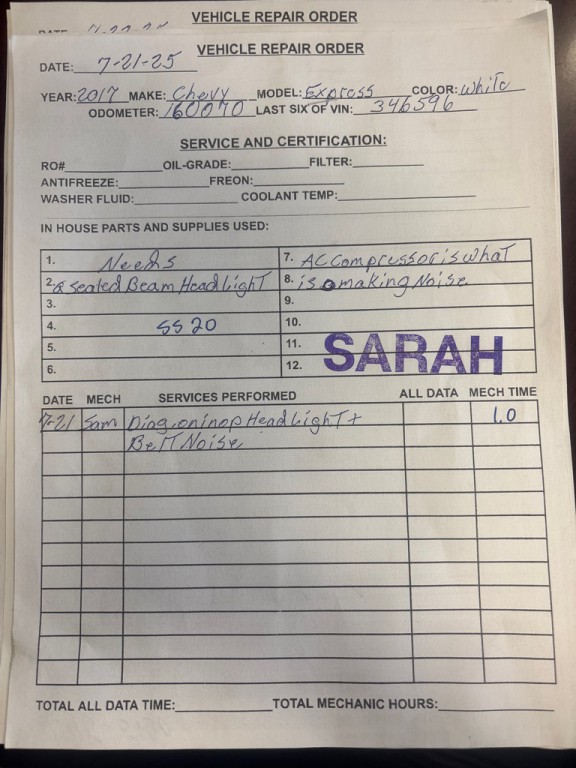 VEHICLE REPAIR ORDER
VEHICLE REPAIR ORDER
DATE: 7-21-25
YEAR: 2017 MAKE: Chevy MODEL: Express COLOR: White
ODOMETER: 160070 LAST SIX OF VIN: 346596
SERVICE AND CERTIFICATION:
RO# OIL-GRADE: FILTER:
ANTIFREEZE: FREON:
WASHER FLUID: COOLANT TEMP:
IN HOUSE PARTS AND SUPPLIES USED:
1. Needs 7. AC Compressor is what
2. sealed Beam HeadLighT 8. is making Noise
3. 9.
4. SS20 10.
5. 11.
6. 12.
SARAH
DATE MECH SERVICES PERFORMED ALL DATA MECH TIME
7-21 Sam Diag on inop HeadLighT + 1.0
BelT Noise
TOTAL ALL DATA TIME: TOTAL MECHANIC HOURS: